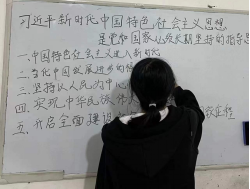 习近平新时代中国特色社会主义思想
是党和国家必须长期坚持的指导思
一.中国特色社会主义进入新时代
二.当代中国发展进步的
三.坚持以人民为中心
四.实现中华民族伟
五.开启全面建设 新征程